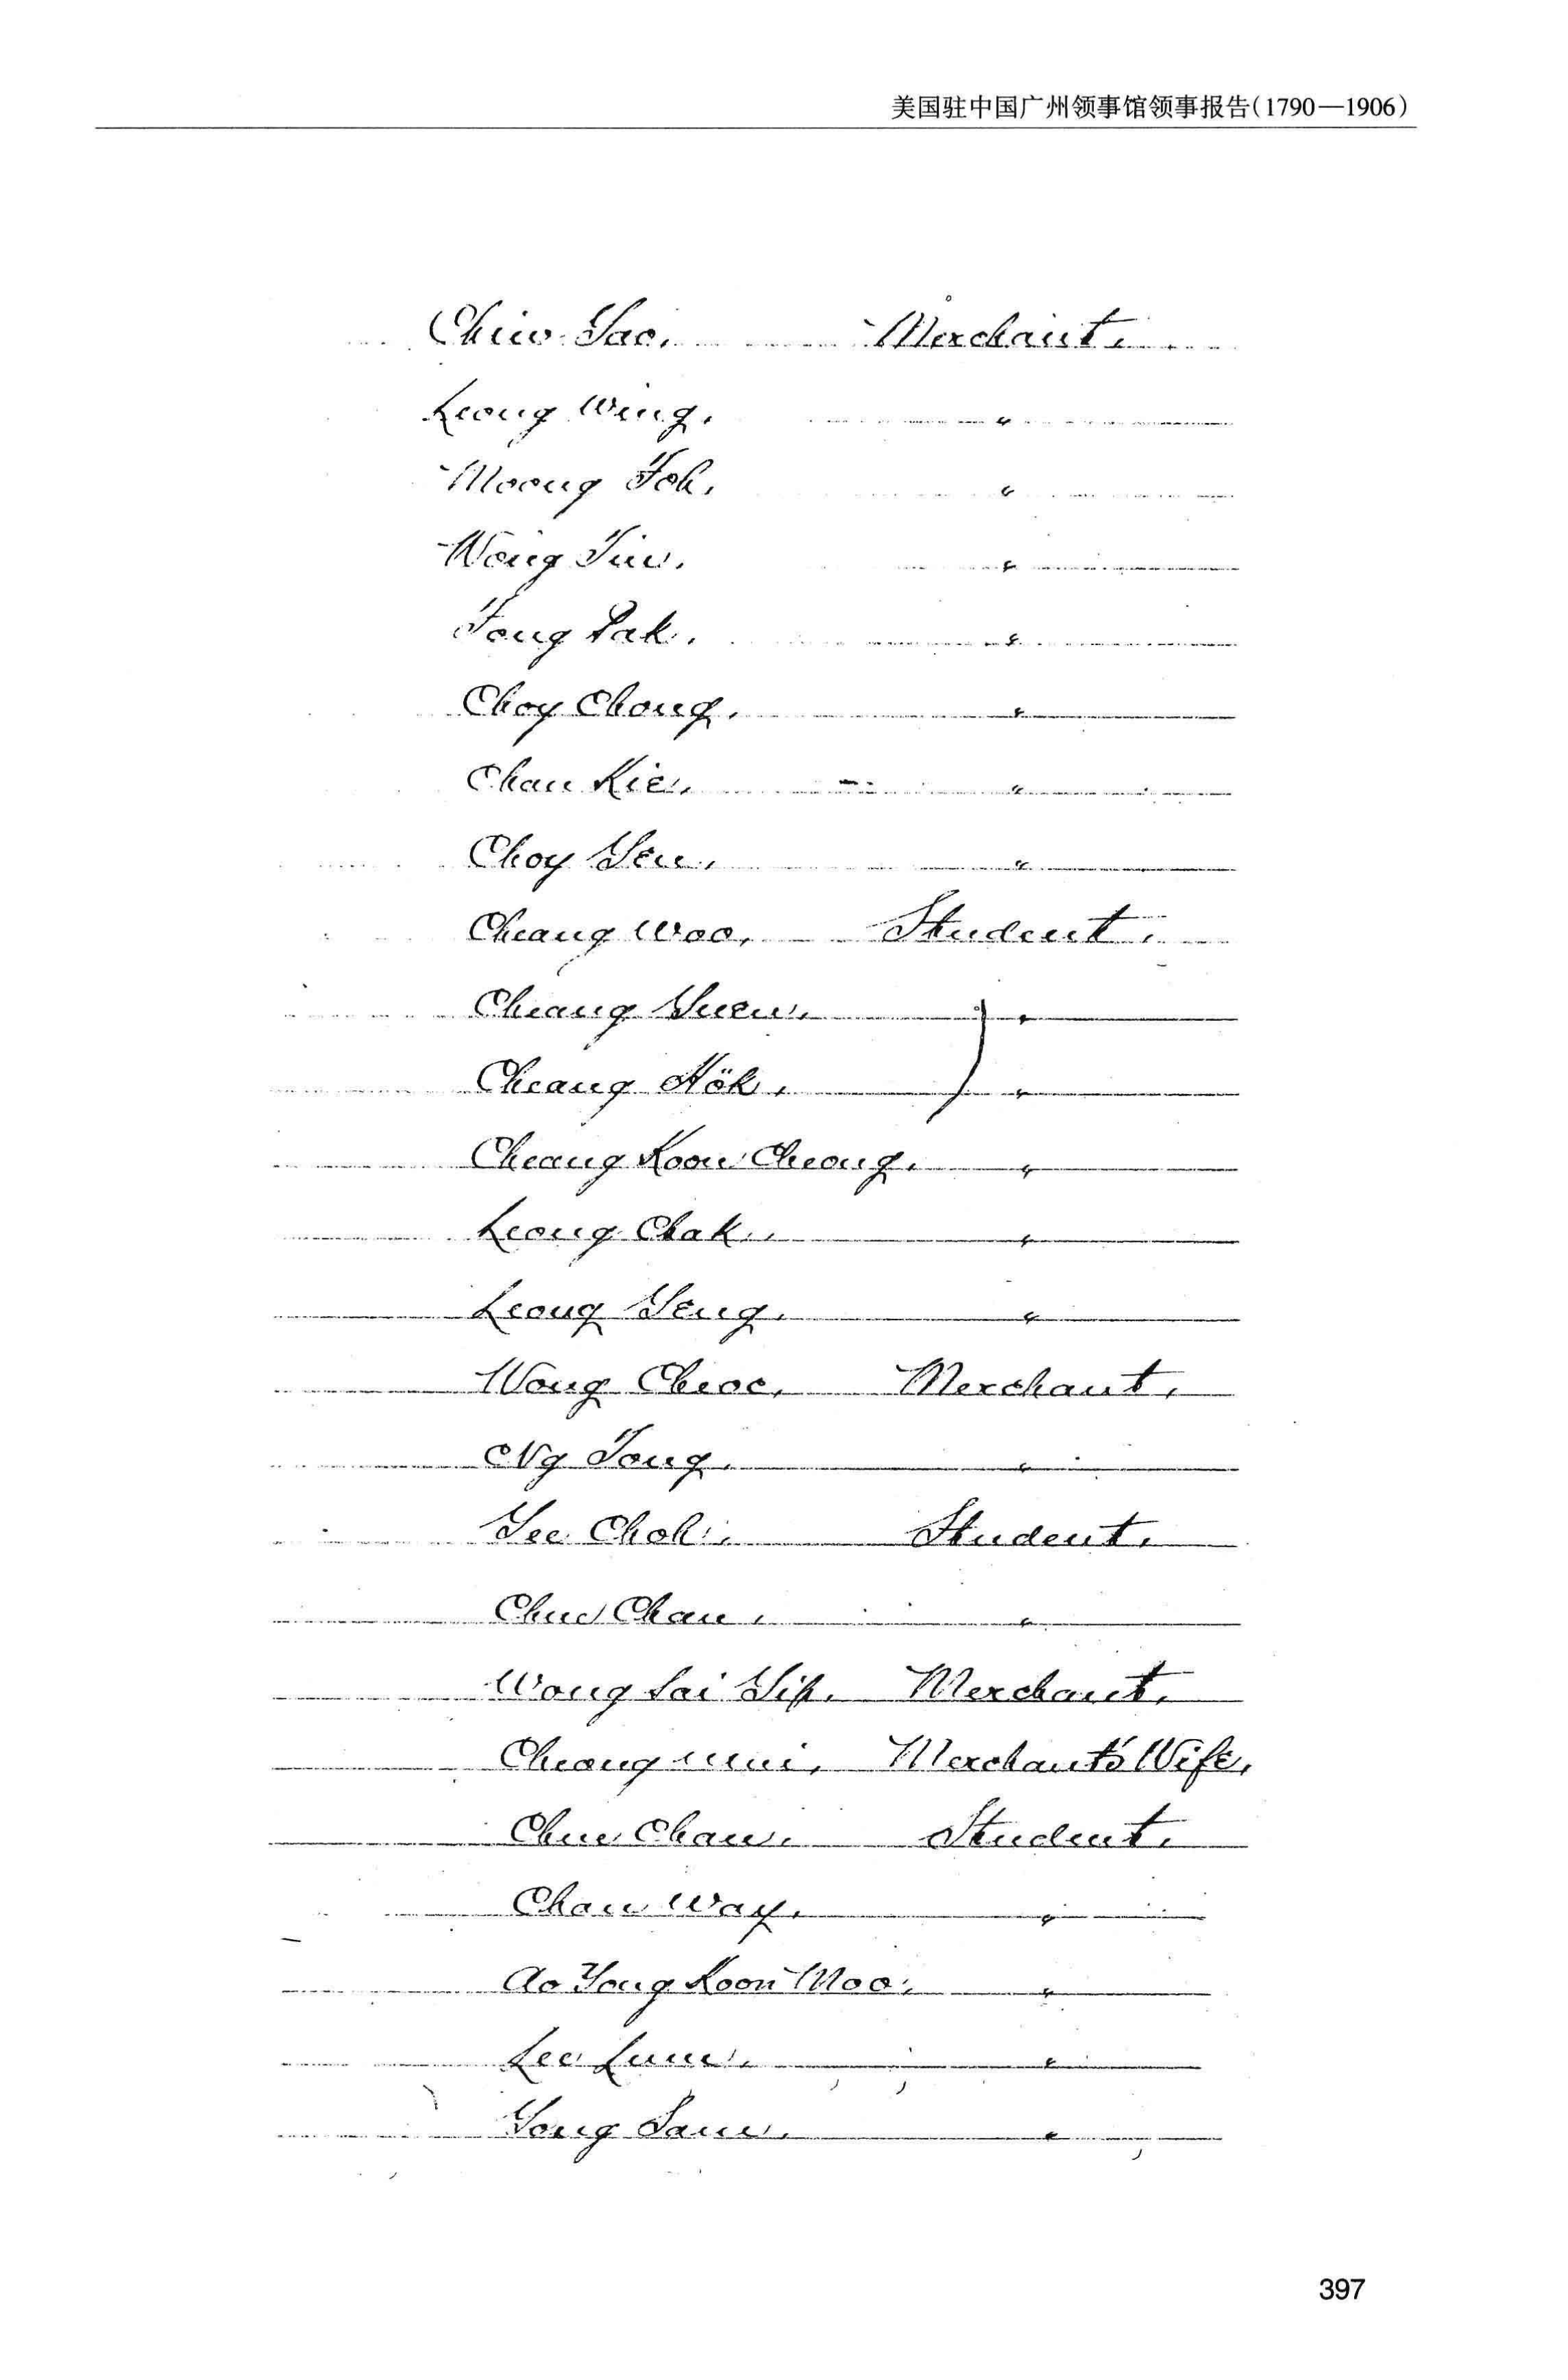 美国驻中国广州领事馆领事报告(1790—1906)
Chiw Yao, Merchant.
Leong Wing, "
Moong Foh, "
Wong Tin, "
Fong Pak, "
Choy Chong, "
Chan Kie, "
Choy Yen, "
Cheang Woo, Student.
Cheang Yuen, "
Cheang Hök, "
Cheang Koon Cheong, "
Leong Chak, "
Leong Yeng, "
Wong Cheoc, Merchant,
Ng Tong, "
Yee Choh, Student,
Chue Chan, "
Wong Sai Yip, Merchant,
Cheong Mui, Merchant's Wife,
Chue Chan, Student,
Chan Way, "
Ao Yong Koon Moo, "
Lee Lum, "
Yong Sam, "
397